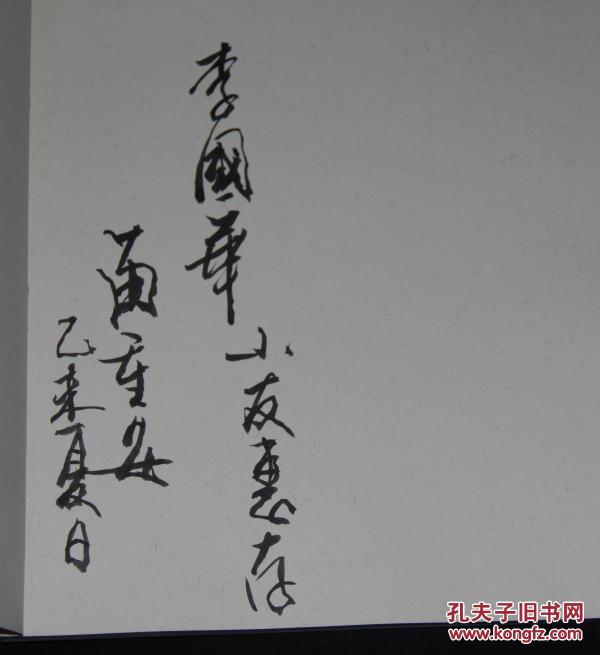 李國華小友惠存
苗重安
乙未夏日
孔夫子旧书网
www.kongfz.com